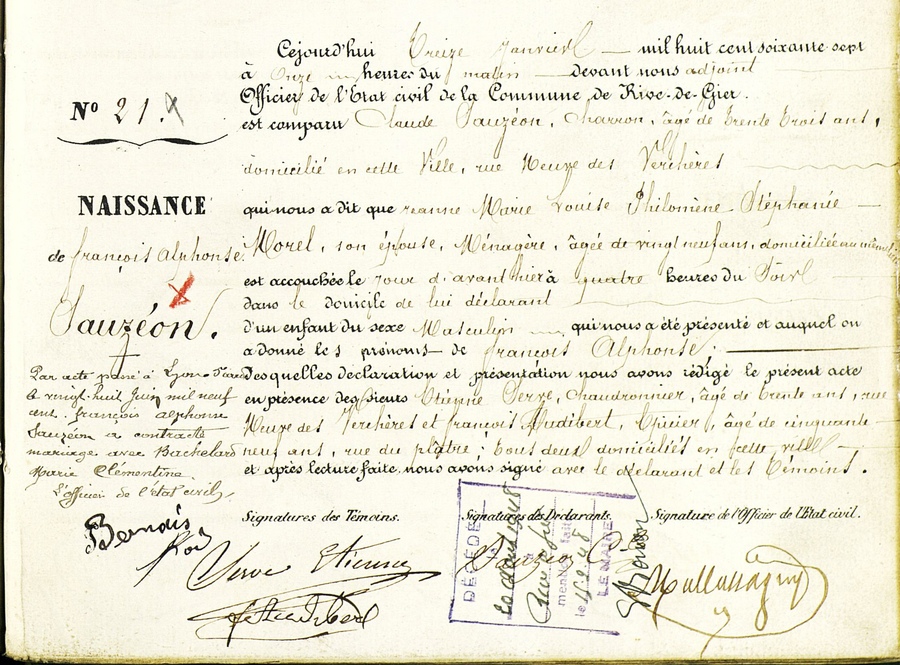 Cejourd'hui Treize Janvier mil huit cent soixante sept
à Onze heures du matin devant nous adjoint
Officier de l'Etat civil de la Commune de Rive-de-Gier.
est comparu Claude Sauzéon, Charron, âgé de trente trois ans,
domicilié en cette Ville, rue Neuve des Verchères
qui nous a dit que Jeanne Marie Louise Philomène Stéphanie
Morel, son épouse, Ménagère, âgée de vingt neuf ans, domiciliée au même
est accouchée le Jour d'avant hier à quatre heures du Soir
dans le domicile de lui déclarant
d'un enfant du sexe Masculin qui nous a été présenté et auquel on
a donné les prénoms de François Alphonse.
Desquelles déclaration et présentation nous avons rédigé le présent acte
en présence des sieurs Etienne Serve, Chaudronnier, âgé de trente ans, rue
Neuve des Verchères et François Audibert, Epicier, âgé de cinquante
neuf ans, rue du plâtre; tous deux domiciliés en cette ville
et après lecture faite, nous avons signé avec le déclarant et les témoins.
N° 21.
NAISSANCE
de François Alphonse
Sauzéon.
Par acte passé à Lyon
le vingt huit Juin mil neuf
cent. François alphonse
Sauzéon a contracté
mariage avec Bachelard
Marie Clémentine
L'officier de l'état civil,
Signatures des Témoins.
Signatures des Déclarants.
Signature de l'Officier de l'Etat civil.
Serve Etienne
Audibert
Sauzéon
DÉCÉDÉ
à
mention fait
le
LE MAIRE